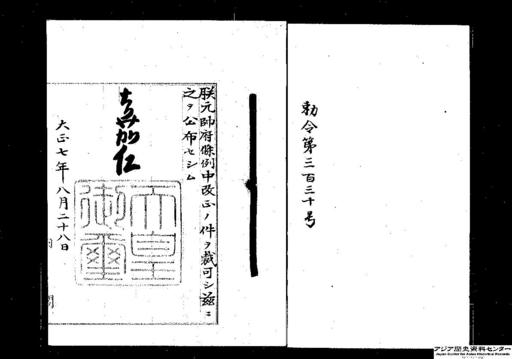 勅令第三百三十号
朕元帥府條例中改正ノ件ヲ裁可シ茲ニ
之ヲ公布セシム
嘉仁
天皇御璽
大正七年八月二十八日
アジア歴史資料センター
Japan Center for Asian Historical Records